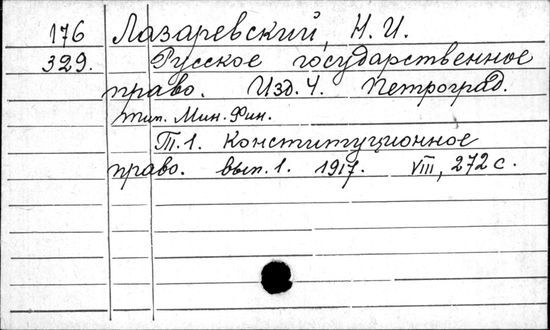 176 Лазаревский, Н. И.
329. Русское государственное
право. Изд. 4. Петроград.
тип. Мин. Фин.
Т. 1. Конституционное
право. вып. 1. 1917. VIII, 272 с.